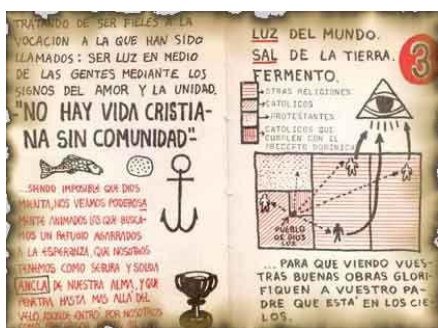 TRATANDO DE SER FIELES A LA
VOCACION A LA QUE HAN SIDO
LLAMADOS: SER LUZ EN MEDIO
DE LAS GENTES MEDIANTE LOS
SIGNOS DEL AMOR Y LA UNIDAD.
-"NO HAY VIDA CRISTIA-
NA SIN COMUNIDAD"-
...SIENDO IMPOSIBLE QUE DIOS
MIENTA, NOS VEAMOS PODEROSA
MENTE ANIMADOS LOS QUE BUSCA-
MOS UN REFUGIO AGARRADOS
A LA ESPERANZA, QUE NOSOTROS
TENEMOS COMO SEGURA Y SOLIDA
ANCLA DE NUESTRA ALMA, Y QUE
PENETRA HASTA MAS ALLA DEL
VELO, DONDE ENTRÓ POR NOSOTROS
LUZ DEL MUNDO.
SAL DE LA TIERRA.
FERMENTO.
3
OTRAS RELIGIONES
CATOLICOS
PROTESTANTES
CATOLICOS QUE
CUMPLEN CON EL
PRECEPTO DOMINICAL
PUEBLO
DE DIOS
LUZ
... PARA QUE VIENDO VUES-
TRAS BUENAS OBRAS GLORI-
FIQUEN A VUESTRO PA-
DRE QUE ESTÁ EN LOS CIE-
LOS.